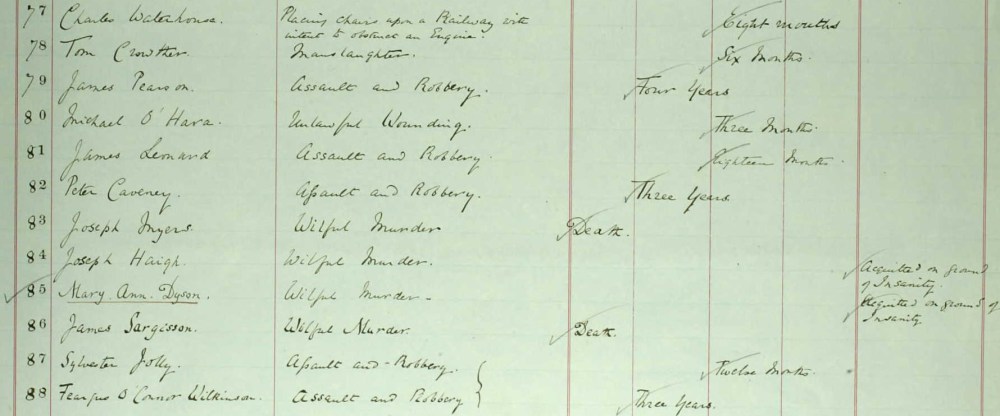 77 Charles Waterhouse. Placing chairs upon a Railway with Eight months
intent to obstruct an Engine.
78 Tom Crowther. Manslaughter. Six Months.
79 James Pearson. Assault and Robbery. Four Years
80 Michael O'Hara. Unlawful Wounding. Three Months.
81 James Leonard Assault and Robbery. Eighteen Months.
82 Peter Caveney. Assault and Robbery. Three Years
83 Joseph Myers. Wilful Murder Death.
84 Joseph Haigh. Wilful Murder. Acquitted on ground
of Insanity.
85 Mary Ann Dyson. Wilful Murder - Acquitted on ground of
Insanity
86 James Sargisson. Wilful Murder. Death.
87 Sylvester Jolly. Assault and Robbery. Twelve Months.
88 Feargus O'Connor Wilkinson. Assault and Robbery Three Years.